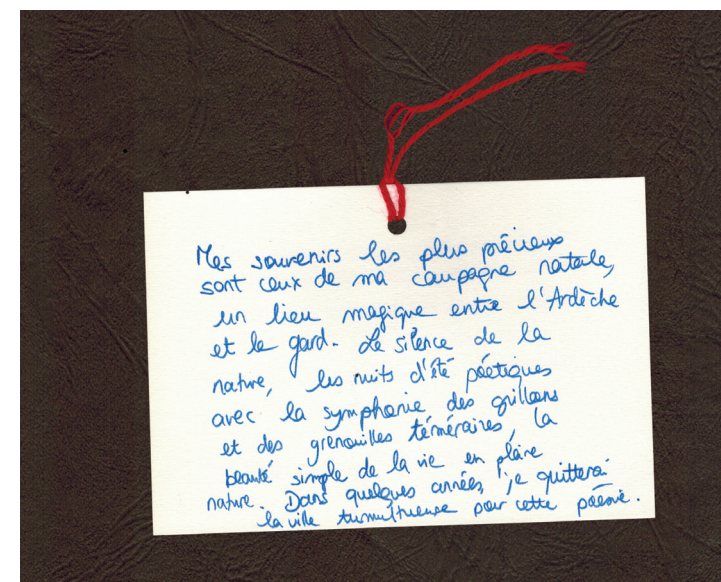 Mes souvenirs les plus précieux
sont ceux de ma campagne natale,
un lieu magique entre l'Ardèche
et le gard. Le silence de la
nature, les nuits d'été poétiques
avec la symphonie des grillons
et des grenouilles téméraires, la
beauté simple de la vie en pleine
nature. Dans quelques années, je quitterai
la ville tumultueuse pour cette poésie.